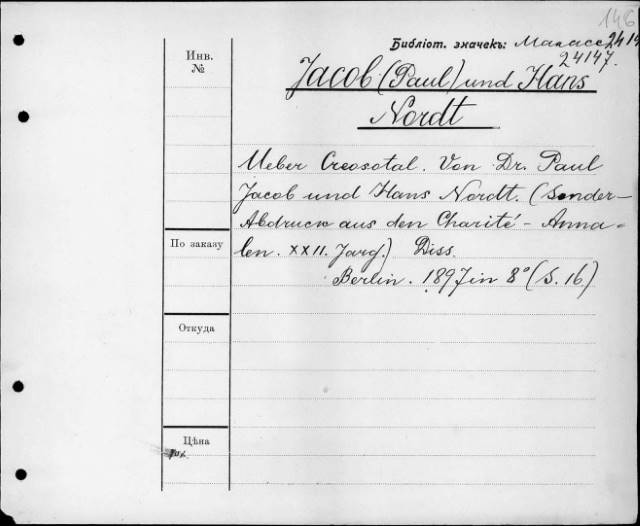 146
Библіот. значекъ: Макасс 2414
24147.
Инв.
№
Jacob (Paul) und Hans
Nordt
Ueber Creosotal. Von Dr. Paul
Jacob und Hans Nordt. (Sonder-
Abdruck aus den Charité - Anna-
len. XXII. Jarg.) Diss.
Berlin. 1897 in 8° (S. 16)
По заказу
Откуда
Цѣна